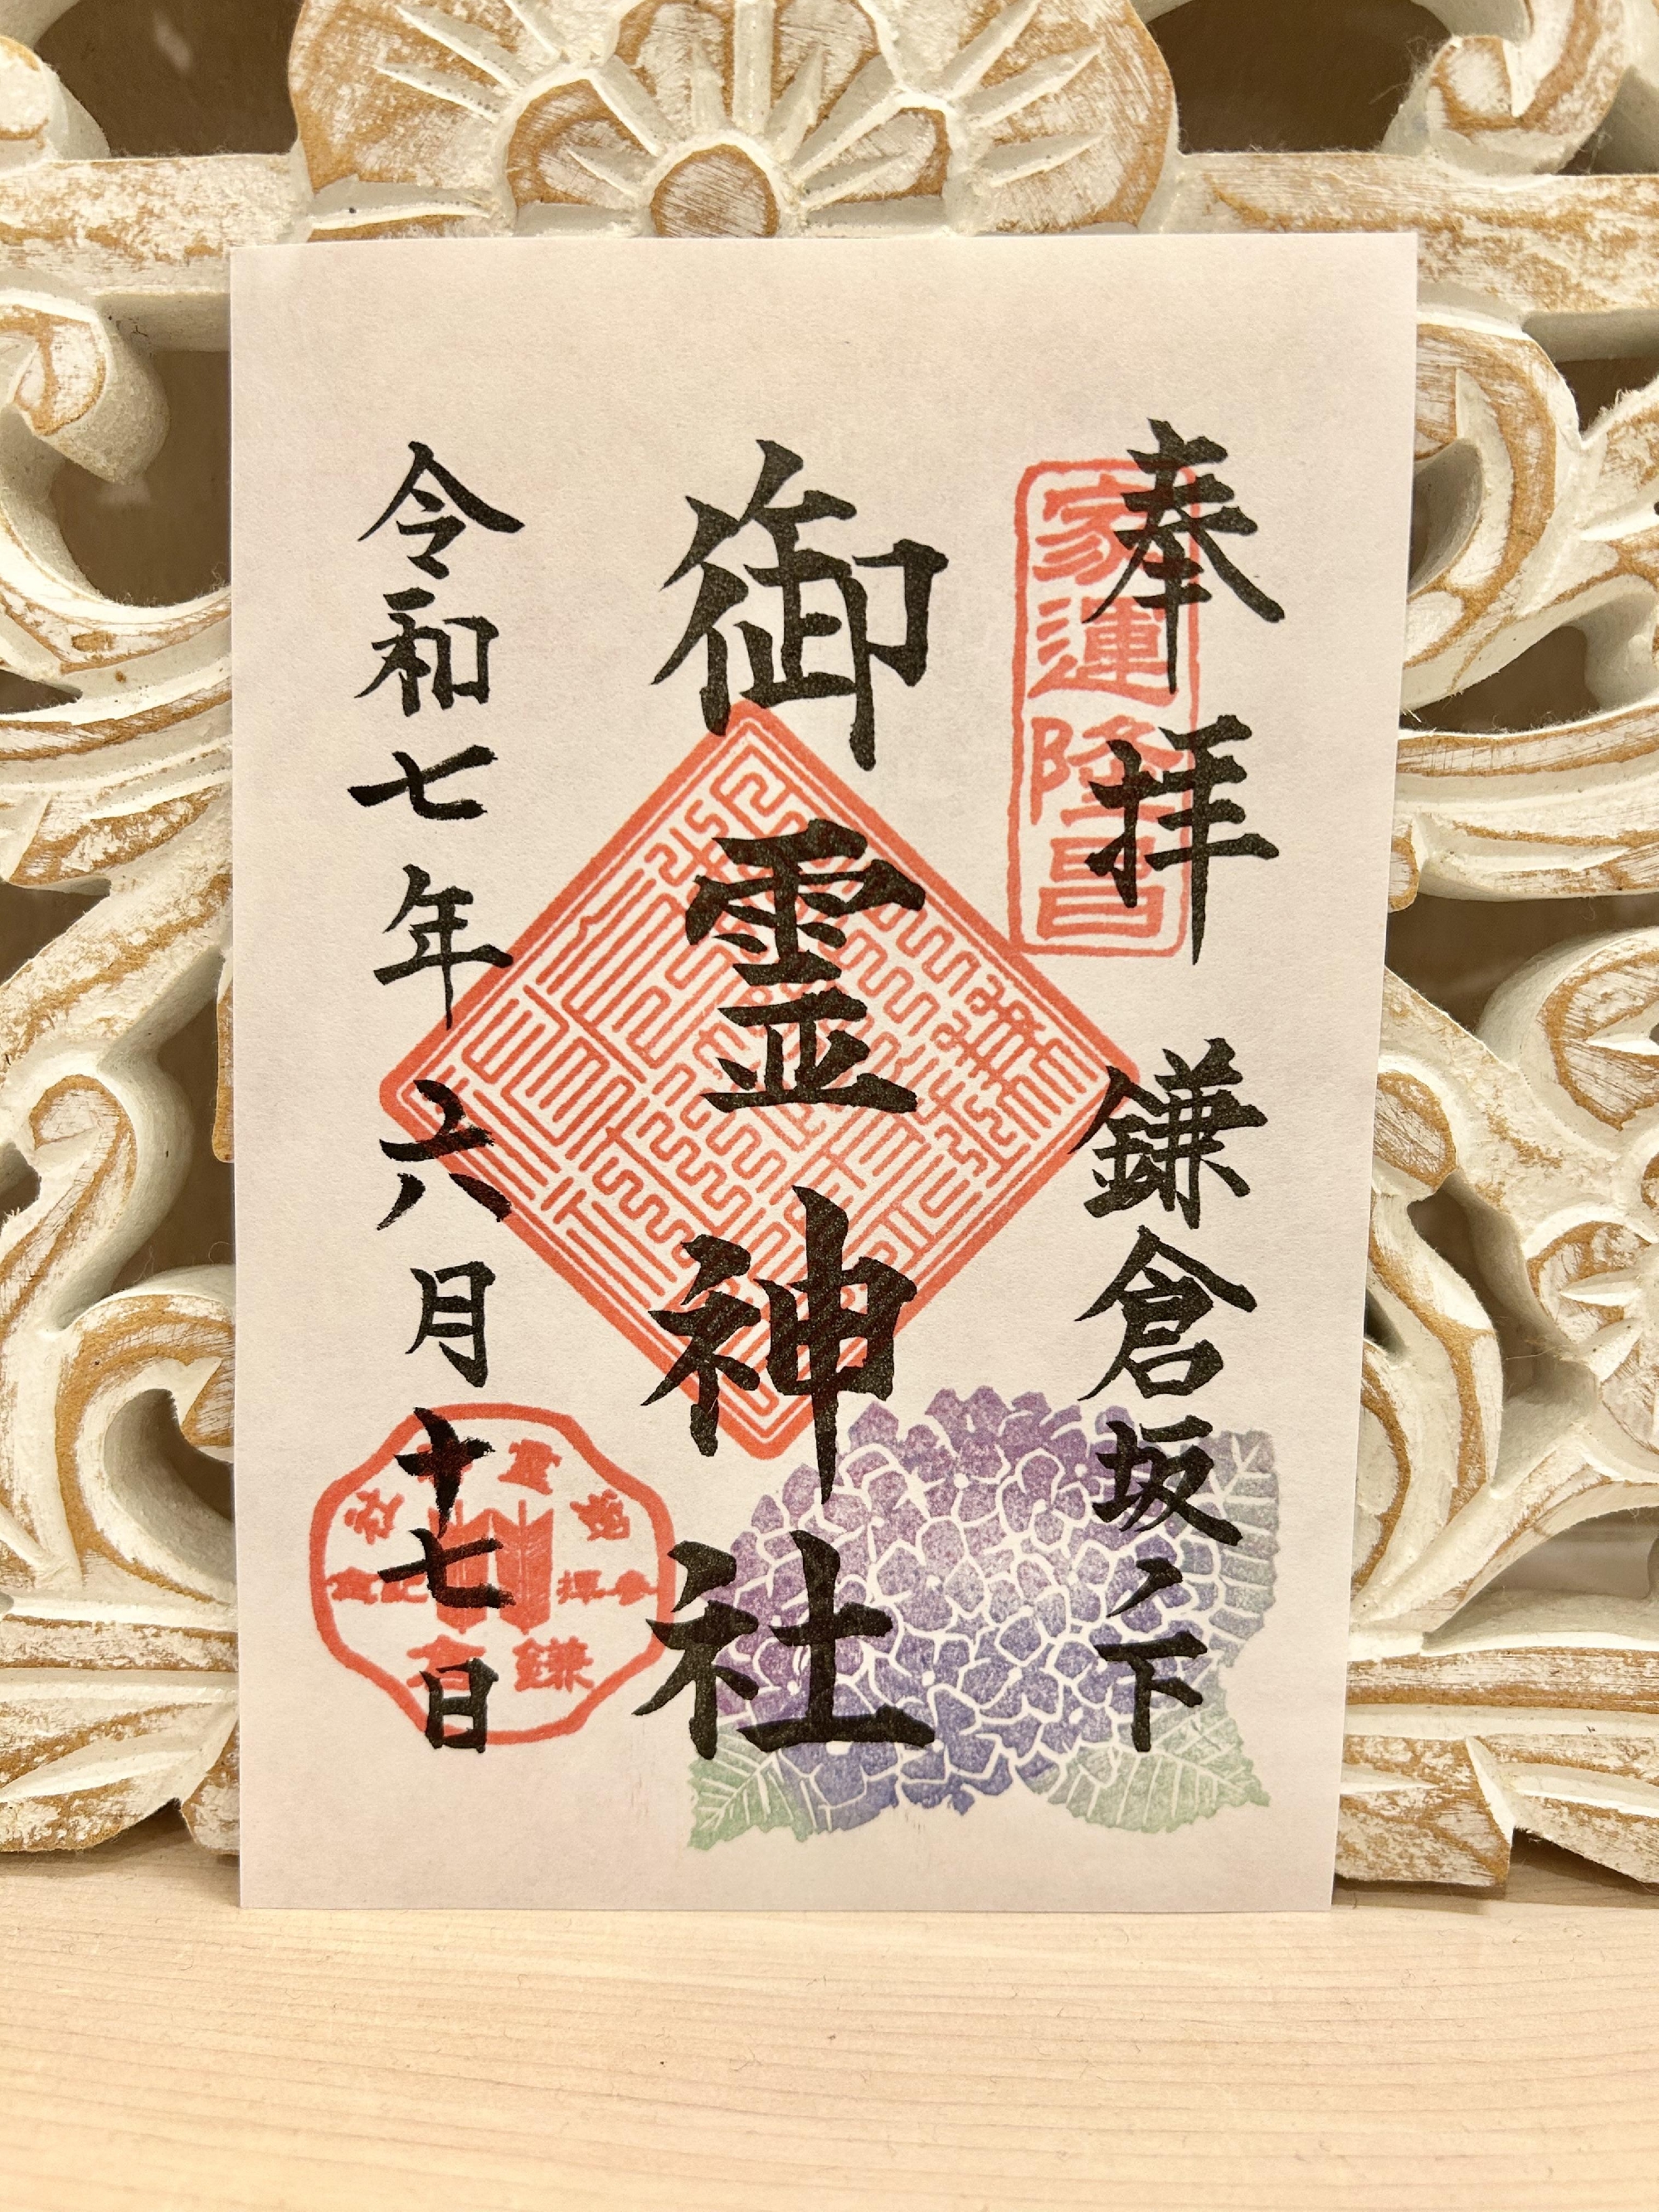 奉拝 鎌倉坂ノ下
家運隆昌
御霊神社
令和七年六月十七日